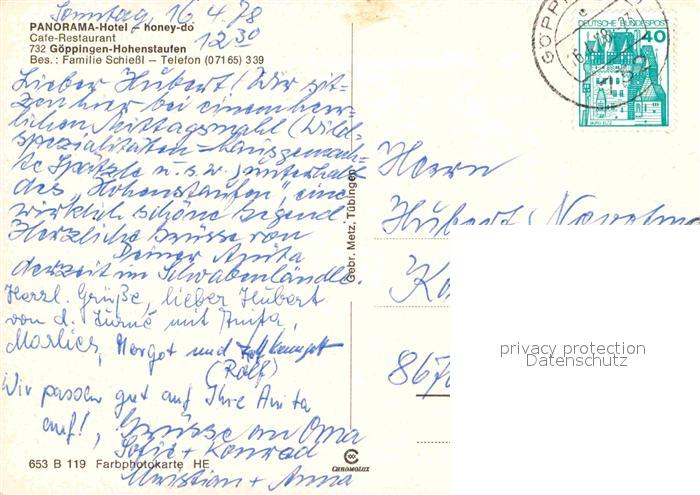 Sonntag, 16.4.78
12.30
PANORAMA-Hotel – honey-do
Cafe-Restaurant
732 Göppingen-Hohenstaufen
Bes.: Familie Schießl – Telefon (07165) 339
Lieber Hubert! Wir sit-
zen hier bei einem herr-
lichen Mittagsmahl (Wild-
spezialitäten – hausgemach-
te Spätzle u.s.w.) unterhalb
des "Hohenstaufen", eine
wirklich schöne Gegend
Herzliche Grüsse von
Deiner Anita
derzeit im Schwabenländle.
Herzl. Grüße, lieber Hubert
von d. mit Anita,
Marlies, Margot und
(Rolf)
Wir passen gut auf Ihre Anita
auf!, Grüsse an Oma
Sofie + Konrad
Christian + Anna
653 B 119 Farbphotokarte HE
CHROMOLUX
Gebr. Metz, Tübingen
DEUTSCHE BUNDESPOST
40
BURG ELTZ
GÖPPINGEN
Herrn
Hubert
867
privacy protection
Datenschutz